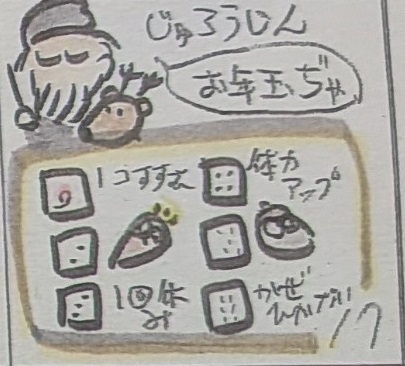 じゅろうじん
お年玉ぢゃ
1コすすむ
体力
アップ
1回休
み
かぜ
ひかない
17